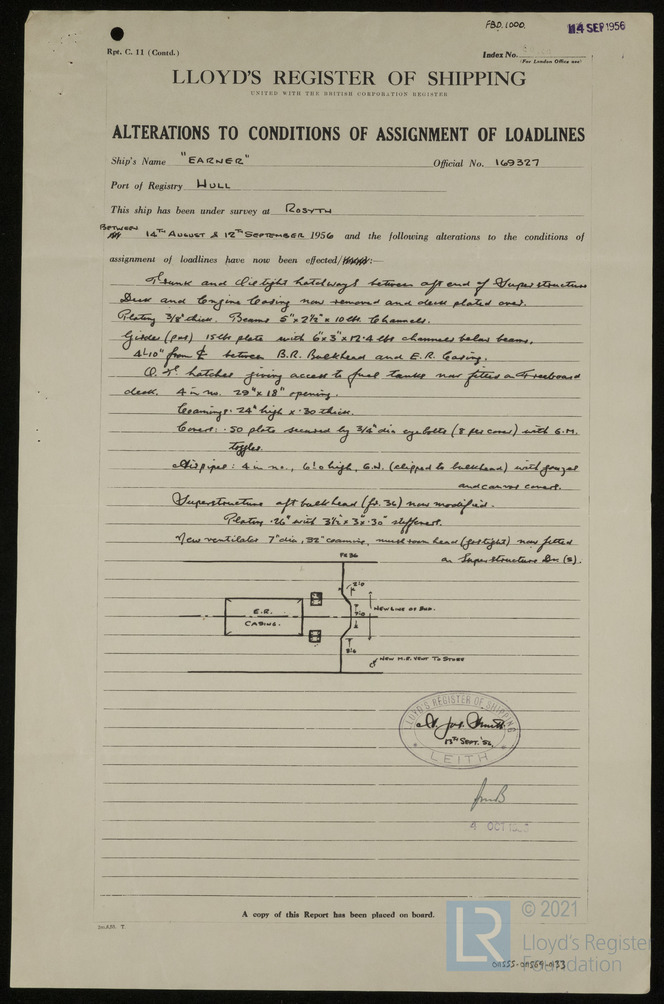 FBD. 1000.
14 SEP 1956
Rpt. C. 11 (Contd.)
Index No.
(For London Office use)
LLOYD'S REGISTER OF SHIPPING
UNITED WITH THE BRITISH CORPORATION REGISTER
ALTERATIONS TO CONDITIONS OF ASSIGNMENT OF LOADLINES
Ship's Name "EARNER" Official No. 169327
Port of Registry HULL
This ship has been under survey at ROSYTH
BETWEEN
14TH AUGUST & 12TH SEPTEMBER 1956 and the following alterations to the conditions of
assignment of loadlines have now been effected/
Trunk and Oiltight hatchways between aft end of Superstructure
Deck and Engine Casing now removed and deck plated over.
Plating 3/8" thick. Beams 5" x 2½" x 10 lb. Channels.
Girder (p&s) 15 lb plate with 6" x 3" x 12.4 lbs channels below beams,
4'.10" from ℄ between B.R. Bulkhead and E.R. Casing.
O.T. hatches giving access to fuel tanks now fitted on Freeboard
deck. 4 in no. 29" x 18" opening.
Coamings. 24" high x .30 thick.
Covers: .50 plate secured by 3/4" dia eyebolts (8 per cover) with G.M.
toggles.
Airpipes: 4 in no., 6'.0 high, G.N. (clipped to bulkhead) with
and canvas covers.
Superstructure aft bulkhead (fr. 36) now modified.
Plating .26" with 3½" x 3" x .30" stiffeners.
New ventilator 7" dia, 32" coaming, mushroom head (gastight) now fitted
on Superstructure Dk (S).
FR 36
2'.0
E.R.
CASING.
7'.0
NEW LINE OF BHD.
NEW M.S. VENT TO STORE
LLOYD'S REGISTER OF SHIPPING
13TH SEPT. '56
LEITH
4 OCT 1956
A copy of this Report has been placed on board.
© 2021
LR
Lloyd's Register
Foundation